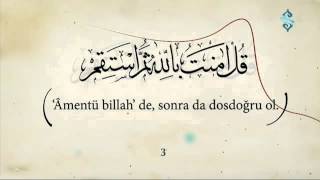 قُلْ اٰمَنْتُ بِاللّٰهِ ثُمَّ اسْتَقِمْ
‘Âmentü billah’ de, sonra da dosdoğru ol.
3